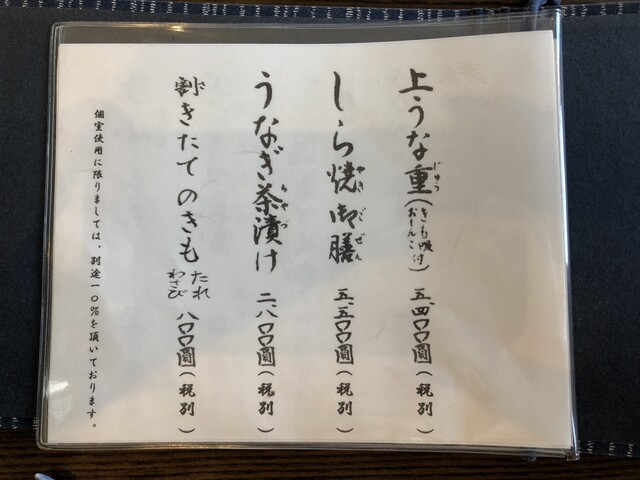 上うな重(きも吸付 おしんこ)五、四〇〇圓(税別)
じゅう
しら焼御膳 五、五〇〇圓(税別)
やき ごぜん
うなぎ茶漬け 二、八〇〇圓(税別)
ちゃづ
割きたてのきも たれ わさび 八〇〇圓(税別)
個室使用に限りましては、別途一〇%を頂いております。